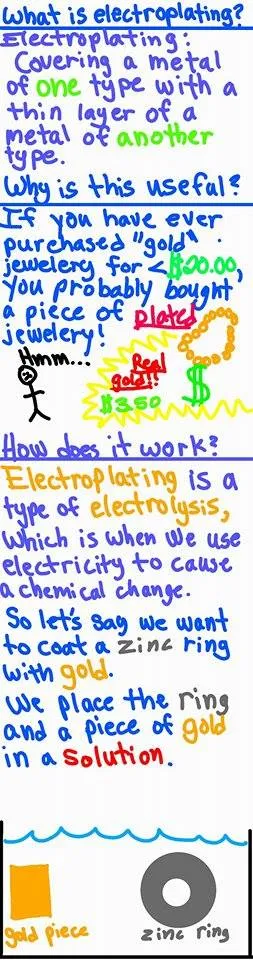 What is electroplating?
Electroplating:
Covering a metal
of one type with a
thin layer of a
metal of another
type.
Why is this useful?
If you have ever
purchased "gold"
jewelery for <$20.00,
you probably bought
a piece of plated
jewelery!
Hmm...
Real
gold!!
$3.50
$
How does it work?
Electroplating is a
type of electrolysis,
which is when we use
electricity to cause
a chemical change.
So let's say we want
to coat a zinc ring
with gold.
We place the ring
and a piece of gold
in a solution.
gold piece
zinc ring